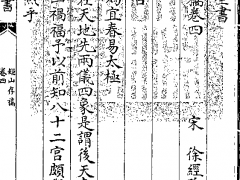 書
稿卷四
宋 徐經
宜春易太極
在天地先兩儀四象是謂後天
禍福予以前知八十二宮頗
乎
書
矩山存稿
卷四